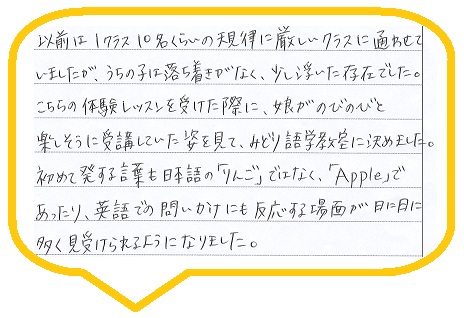 以前は1クラス10名くらいの規律に厳しいクラスに通わせて
いましたが、うちの子は落ち着きがなく、少し浮いた存在でした。
こちらの体験レッスンを受けた際に、娘がのびのびと
楽しそうに受講していた姿を見て、みどり語学教室に決めました。
初めて発する言葉も日本語の「りんご」ではなく、「Apple」で
あったり、英語での問いかけにも反応する場面が日に日に
多く見受けられるようになりました。